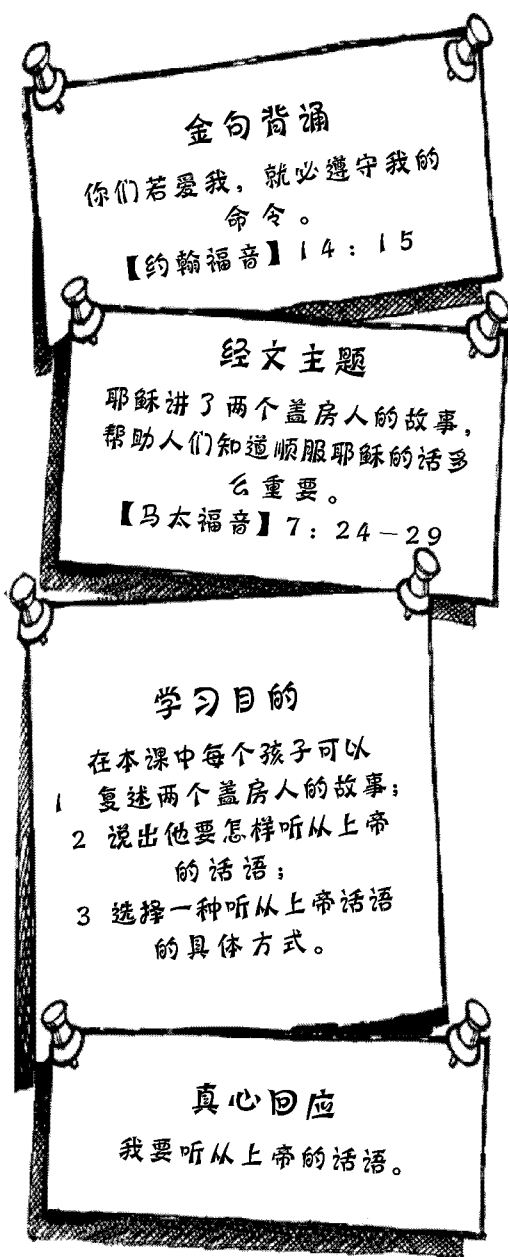 金句背诵
你们若爱我，就必遵守我的
命令。
【约翰福音】14：15
经文主题
耶稣讲了两个盖房人的故事，
帮助人们知道顺服耶稣的话多
么重要。
【马太福音】7：24－29
学习目的
在本课中每个孩子可以
1 复述两个盖房人的故事；
2 说出他要怎样听从上帝
的话语；
3 选择一种听从上帝话语
的具体方式。
真心回应
我要听从上帝的话语。